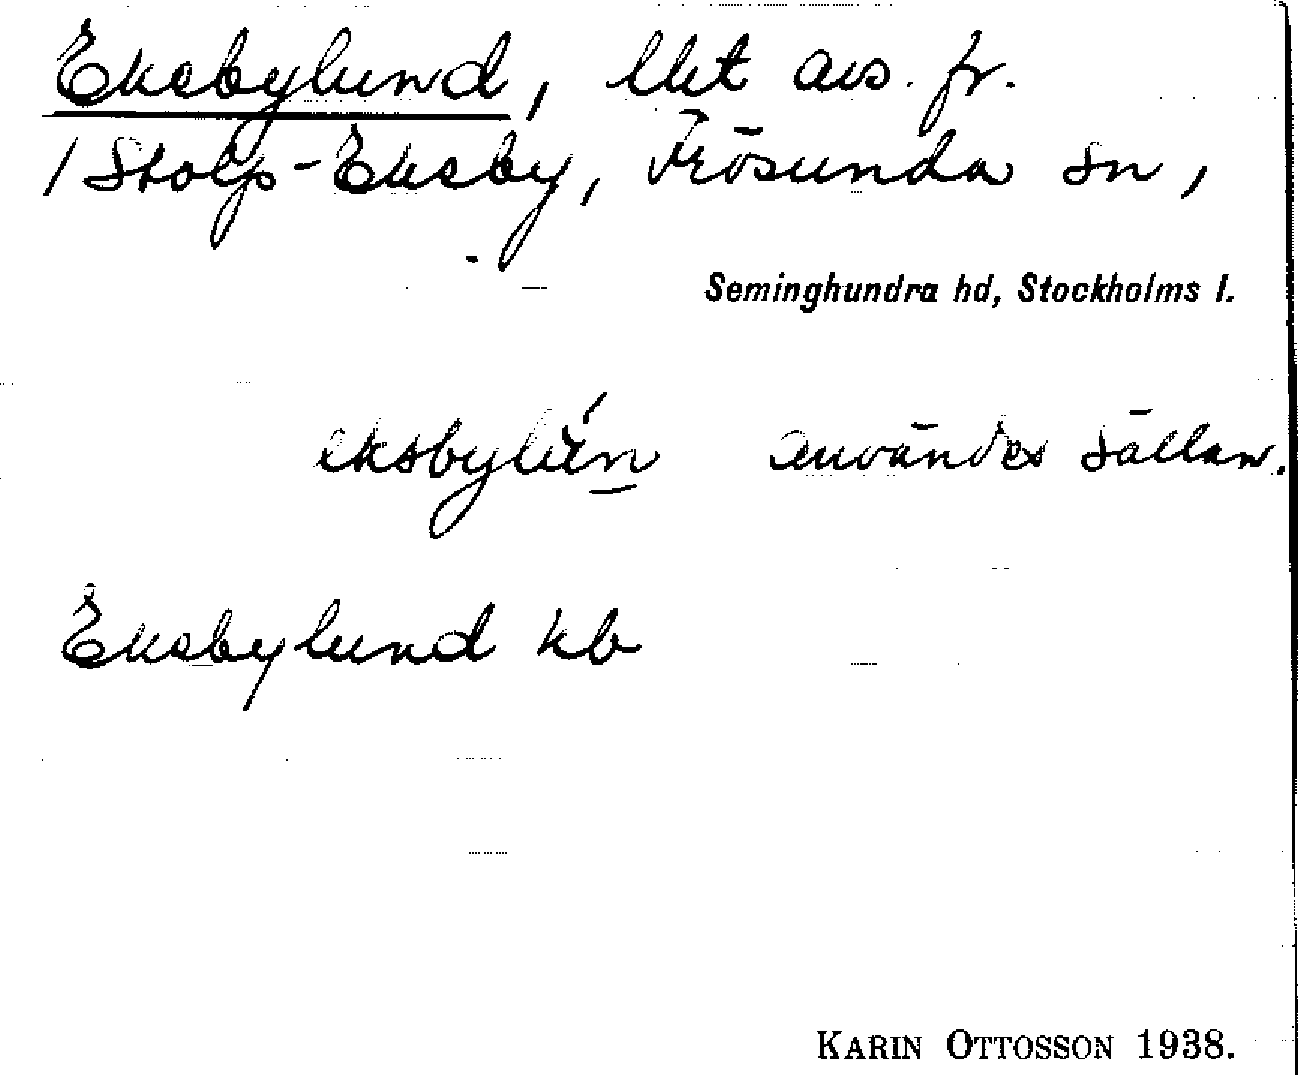 Eksbylund, lht avs. fr.
1 Stolp-Eksby, Frösunda sn,
Seminghundra hd, Stockholms l.
eksbylún användes sällan.
Eksbylund kb
KARIN OTTOSSON 1938.